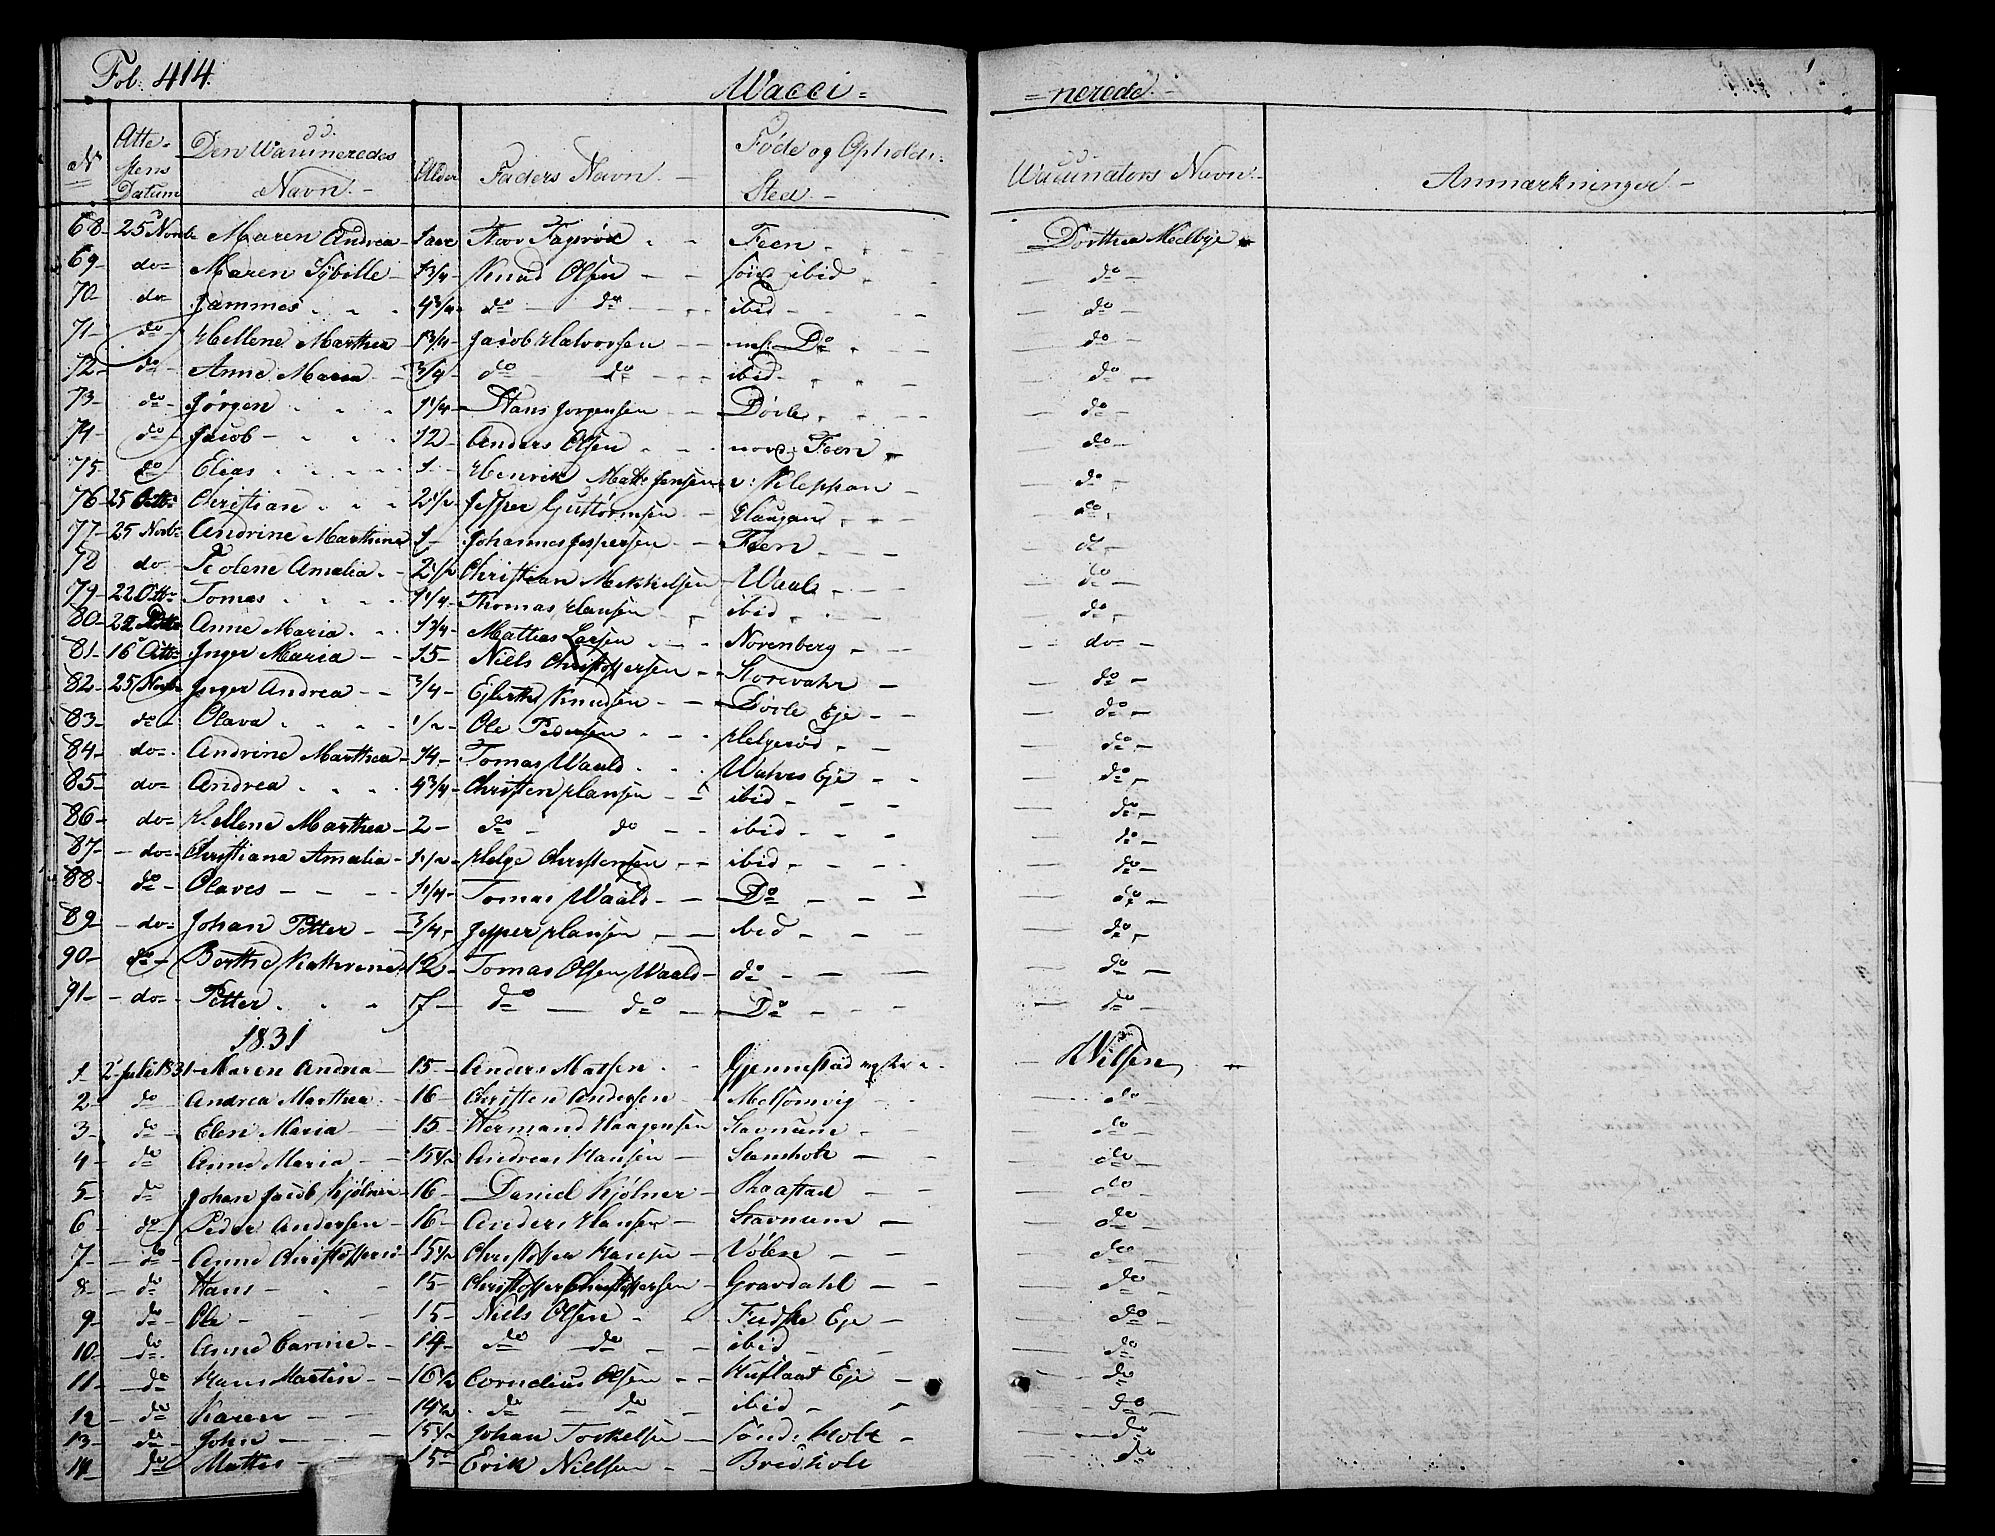 Fol. 414.
Wacci= =nerede.-
No Attestens Datum Den Waccineredes Navn.- Alder Faders Navn.- Føde og Opholds Sted.- Waccinators Navn.- Anmærkninger.-
68- 25 Novb Maren Andrea- 1 aar Feen Dorthea Medbye
69- do= Maren Sybille- 1 3/4- Knud Olsen - - ibid do-
70- do= Jammes 4 3/4- do - do ibid- do-
71- do- Hellene Marthea- 1 3/4- Jacob Halvorsen - Do do-
72- do- Anne Maria - 3/4- do - do ibid- do-
73- do- Jørgen 1 1/4- Hans Jørgensen - Dørle do-
74- do- Jacob- 12- Anders Olsen nord: Feen do-
75- do- Elias 1- Henrik Matt: Jensen v: Kleppan - do-
76- 25 Octb Christian 2 1/2- Jesper Guttormsen - Haugan do
77- 25 Novb- Andrine Marthine 1- Johannes Jespersen - Feen do-
78 do- Amalia.- 2 1/2- Christian Mekkelsen Waale do-
79- 22 Octb Tomas 1 1/4- Thomas Hansen ibid do-
80- 22 Anne Maria 1 3/4- Mathias Larsen Norenberg do-
81- 16 Octb Inger Maria - - 15- Niels Christoffersen - Storevahr - do-
82- 25 Novb Inger Andrea - - 3/4- Ejlerth Knudsen - Dørle Eje - - do-
83- do- Olava 1/2- Ole Pedersen Helgerød do-
84- do- Andrine Marthea- 14- Tomas Waald Wahres Eje - - do-
85- do= Andrea 4 3/4- Christen Hansen - ibid- do-
86- do- Hellene Marthea- 2- do - do - - ibid- do-
87- - do- Christiana Amalia- 1 1/2- Helge Christensen - ibid- do-
88- do- Olaves - - - 1 1/4- Tomas Waald- - Do - do-
89- - do= Johan Petter - 3/4- Jesper Hansen - ibid - do-
90- do- Berthe Kathrine 12- Tomas Olsen Waald- do - do-
91- - do= Petter 7- do - do - Do do-
1831
1- 2 Juli 1831- Maren Andrea- 15- Anders Matsen Gjennestad Nilsen
2- do Andrea Marthea 16- Christen Andersen Melsomvig do-
3- do- Elen Maria 15- Hermand Haagensen Stavnum - do-
4- do Anne Maria - 15 1/2 Andreas Hansen - Stensholt do-
5- do Johan Jacob Kjølner- 16- Daniel Kjølner- Raastad do-
6- do Peder Andersen- 16- Anders Hansen- Stavnum - do-
7- do- Anne Christoffersd 15 1/2 Christoffer Hansen - Vølen - do-
8- do Hans - 15- Christoffer Christoffersen - Gravdahl - do-
9- do- Ole - 15- Niels Olsen Fudske Eje - do
10- do- Anne Carine- 14- do do ibid - do-
11- do- Hans Martin- 16 1/2 Cornelius Olsen - - Huflaat Eje - do
12- do Karen - - 14 1/2 do - do - ibid - do-
13- do- John - - 15 1/2 Johan Torkelsen - sønd: Holt - do-
14- do- Mathis - 15- Erik Nielsen - - Bredholt do